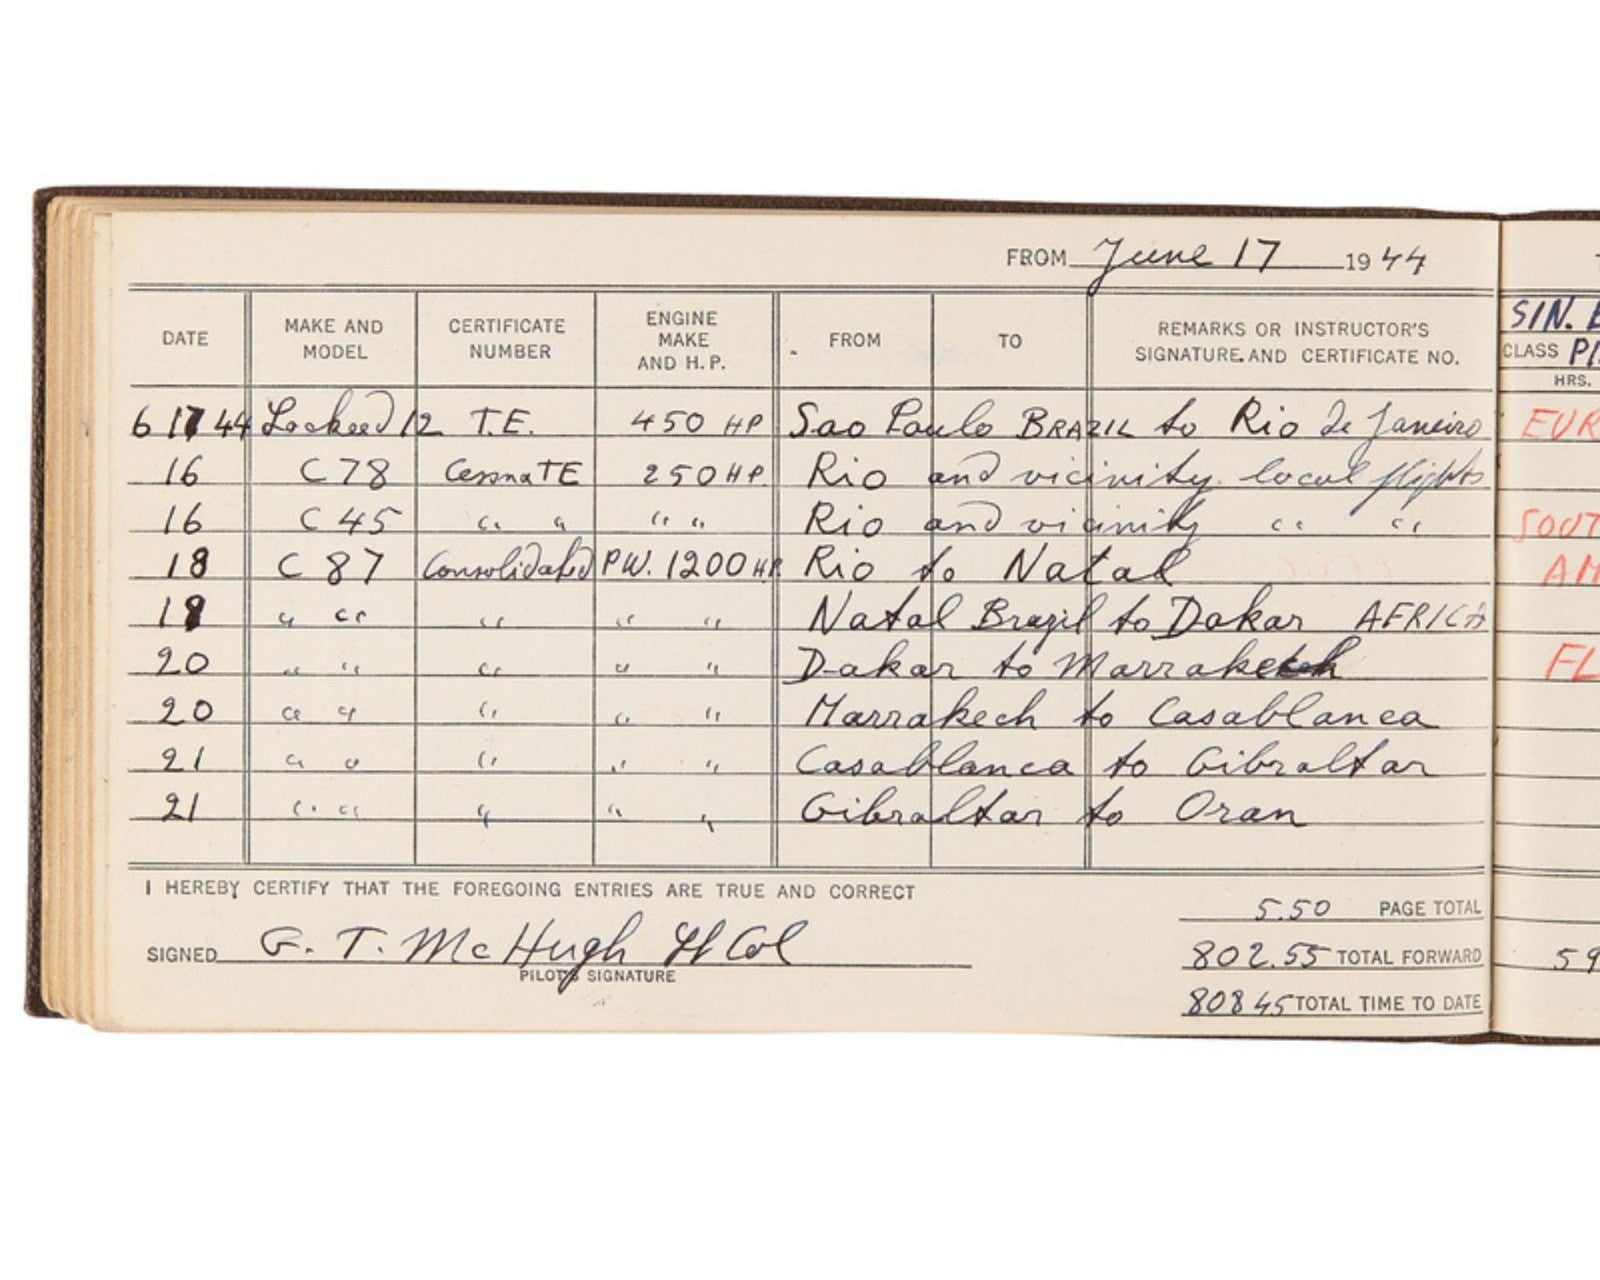 FROM June 17 1944
DATE MAKE AND MODEL CERTIFICATE NUMBER ENGINE MAKE AND H.P. FROM TO REMARKS OR INSTRUCTOR'S SIGNATURE AND CERTIFICATE NO.
SIN. E
CLASS PI.
HRS.
6 17 44 Lockeed 12 T.E. 450 HP Sao Paulo BRAZIL to Rio de Janeiro EUR
16 C78 Cessna TE 250 HP. Rio and vicinity local flights
16 C45 " " " " Rio and vicinity " " SOUT
18 C 87 Consolidated PW. 1200 HP. Rio to Natal AM
19 " " " " " Natal Brazil to Dakar AFRICA
20 " " " " " Dakar to Marrakech FL
20 " " " " " Marrakech to Casablanca
21 " " " " " Casablanca to Gibraltar
21 " " " " " Gibraltar to Oran
I HEREBY CERTIFY THAT THE FOREGOING ENTRIES ARE TRUE AND CORRECT
5.50 PAGE TOTAL
SIGNED G. T. McHugh Lt Col
PILOT'S SIGNATURE
802.55 TOTAL FORWARD 59
808 45 TOTAL TIME TO DATE